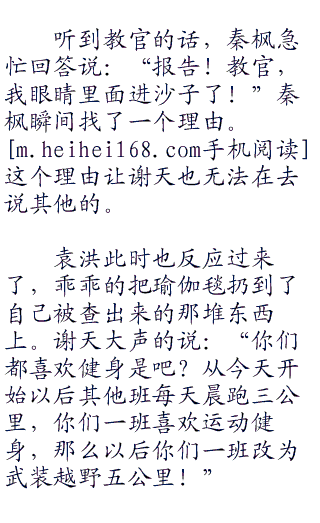 听到教官的话，秦枫急
忙回答说：“报告！教官，
我眼睛里面进沙子了！”秦
枫瞬间找了一个理由。
[m.heihei168.com手机阅读]
这个理由让谢天也无法在去
说其他的。
袁洪此时也反应过来
了，乖乖的把瑜伽毯扔到了
自己被查出来的那堆东西
上。谢天大声的说：“你们
都喜欢健身是吧？从今天开
始以后其他班每天晨跑三公
里，你们一班喜欢运动健
身，那么以后你们一班改为
武装越野五公里！”